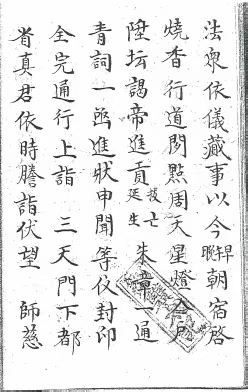 法衆依儀藏事以今早晚朝宿啓
燒香行道関點周天星燈
陞坛謁帝進貢拔亡延生 朱章一通
青詞一函進狀申聞等仪封印
全完通行上詣 三天門下都
省真君依時謄詣伏望 師慈